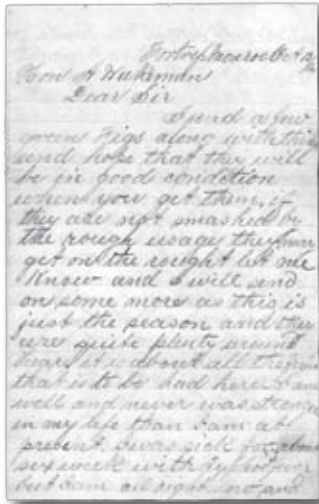 Fortress Monroe Oct 12
Hon A Wakeman
Dear Sir
I send a few
green Figs along with this
and hope that they will
be in good condition
when you get them, if
they are not smashed by
the rough usage they may
get on the rought let me
Know and I will send
on some more as this is
just the season and they
are quite plenty around
hear, it is about all the
that is to be had here I am
well and never was stronger
in my life than I am at
present. I was sick for about
six week with Ty fever
but I am all right now and